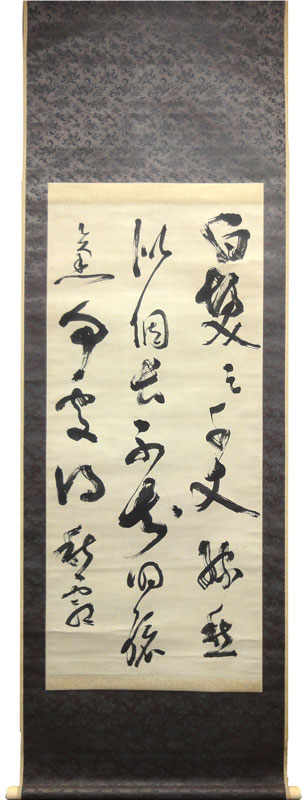 白髪三千丈縁愁
似個長不知明鏡
裏何處得秋霜